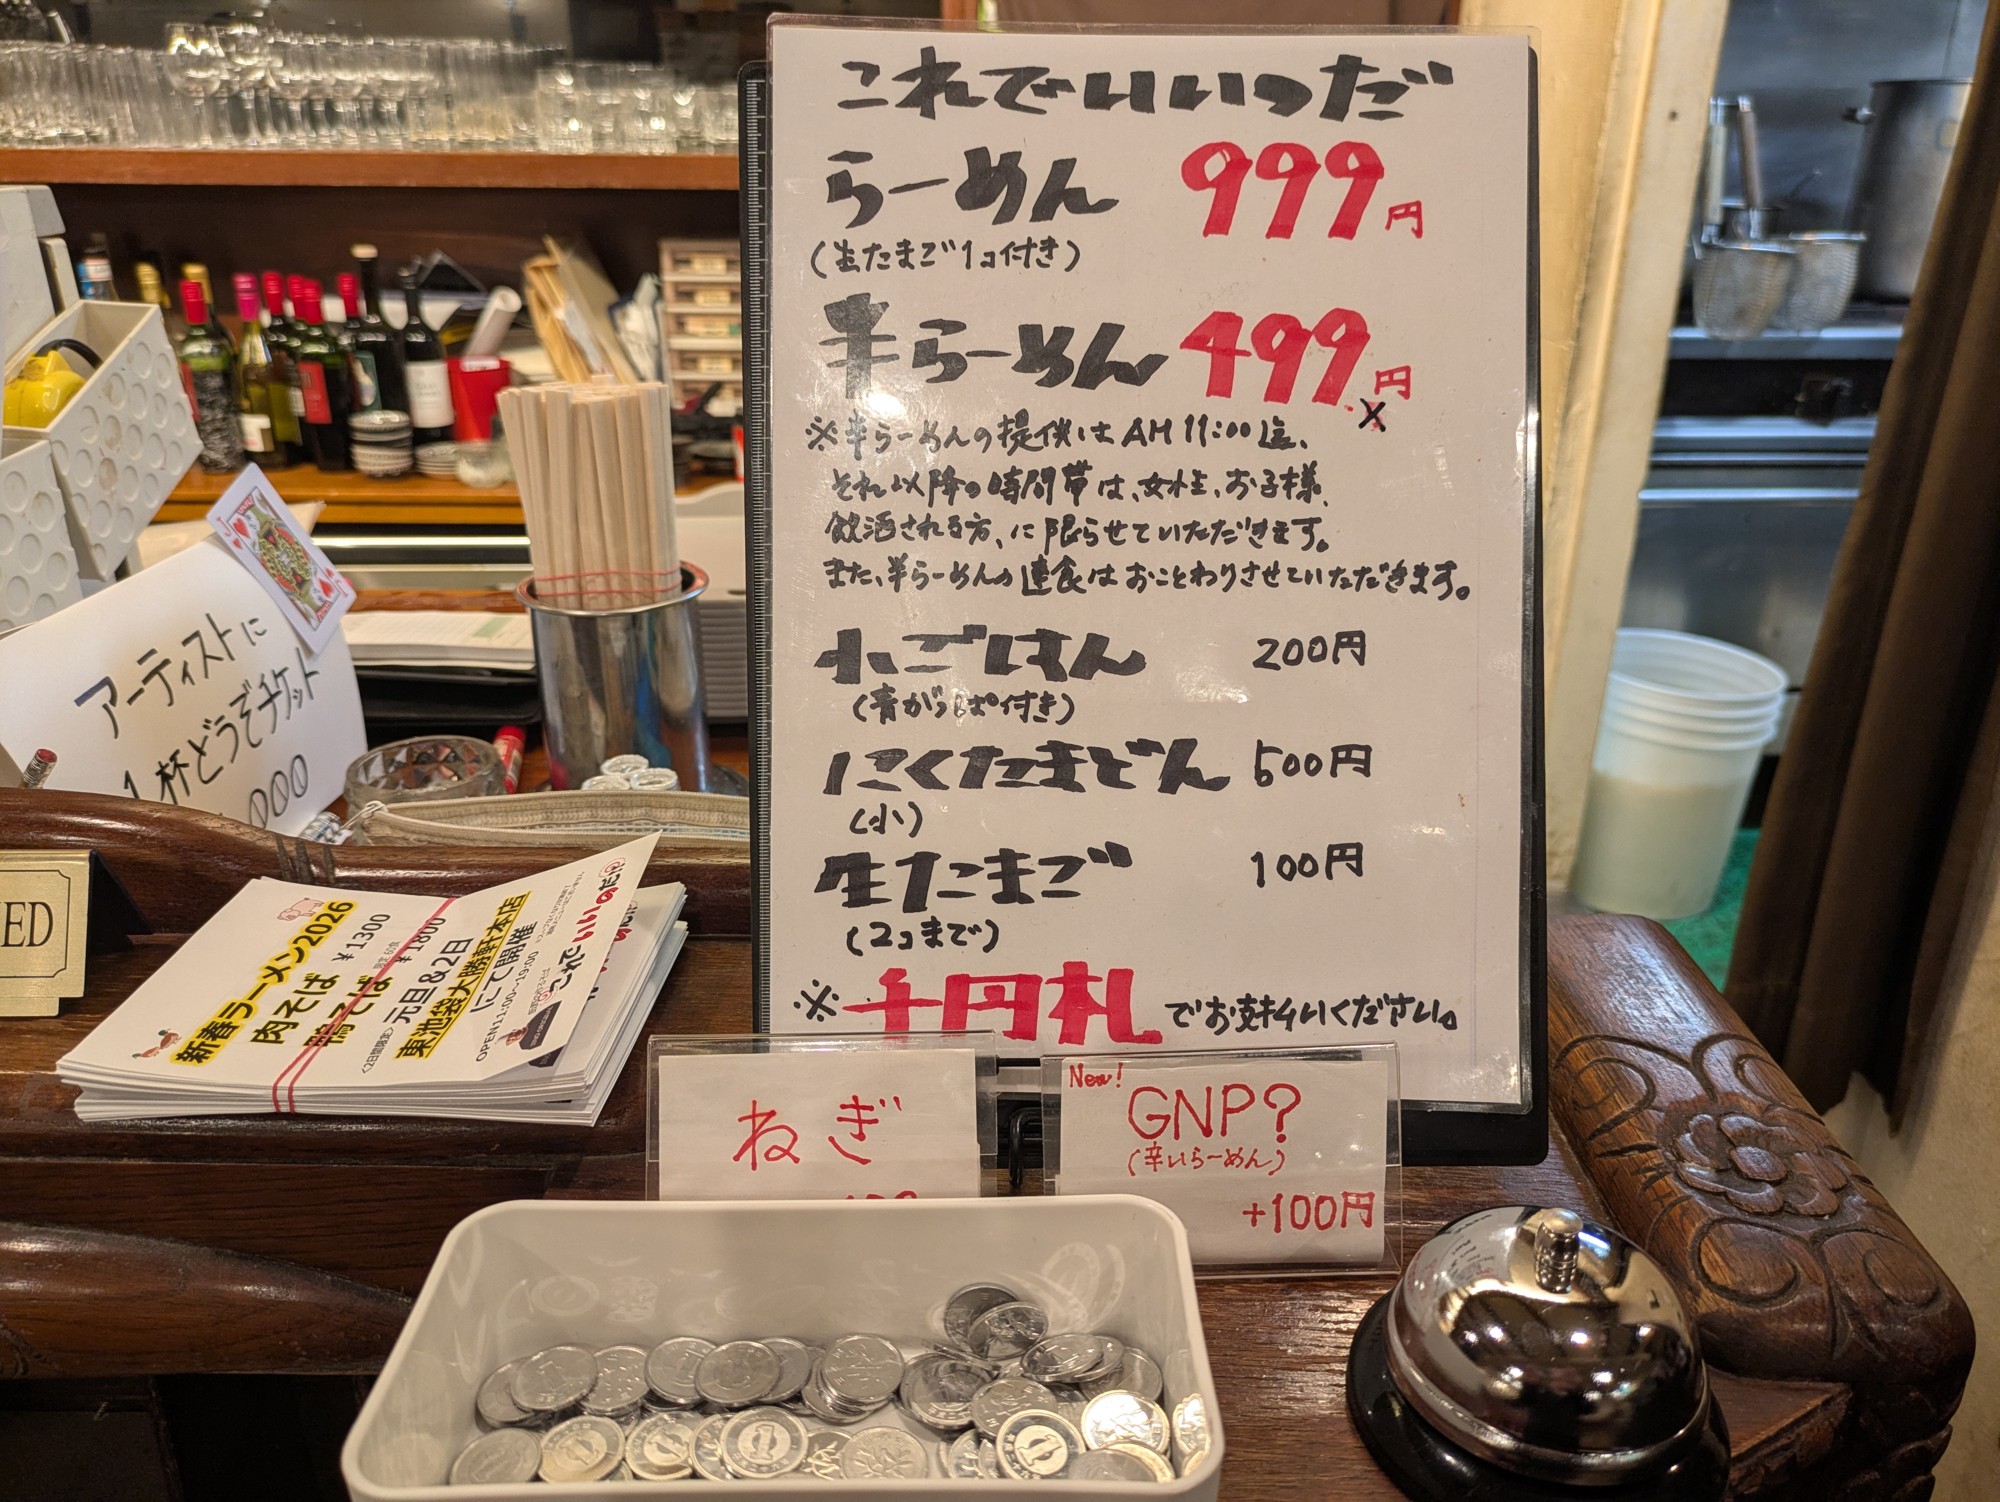 これでいいのだ
らーめん 999円
(生たまご1コ付き)
半らーめん 499円
※半らーめんの提供はAM11:00迄、
それ以降の時間帯は、女性、お子様、
飲酒される方、に限らせていただきます。
また、半らーめんの連食はおことわりさせていただきます。
小ごはん 200円
(青がっぱ付き)
にくたまどん 500円
(小)
生たまご 100円
(2コまで)
※千円札でお支払いください。
ねぎ
New!
GNP?
(辛いらーめん)
+100円
アーティストに
1杯どうぞチケット
新春ラーメン2026
肉そば ¥1300
鴨そば ¥1800
<2日間限定> 元旦&2日
東池袋大勝軒本店
にて開催
OPEN11:00〜19:00
これでいいのだ